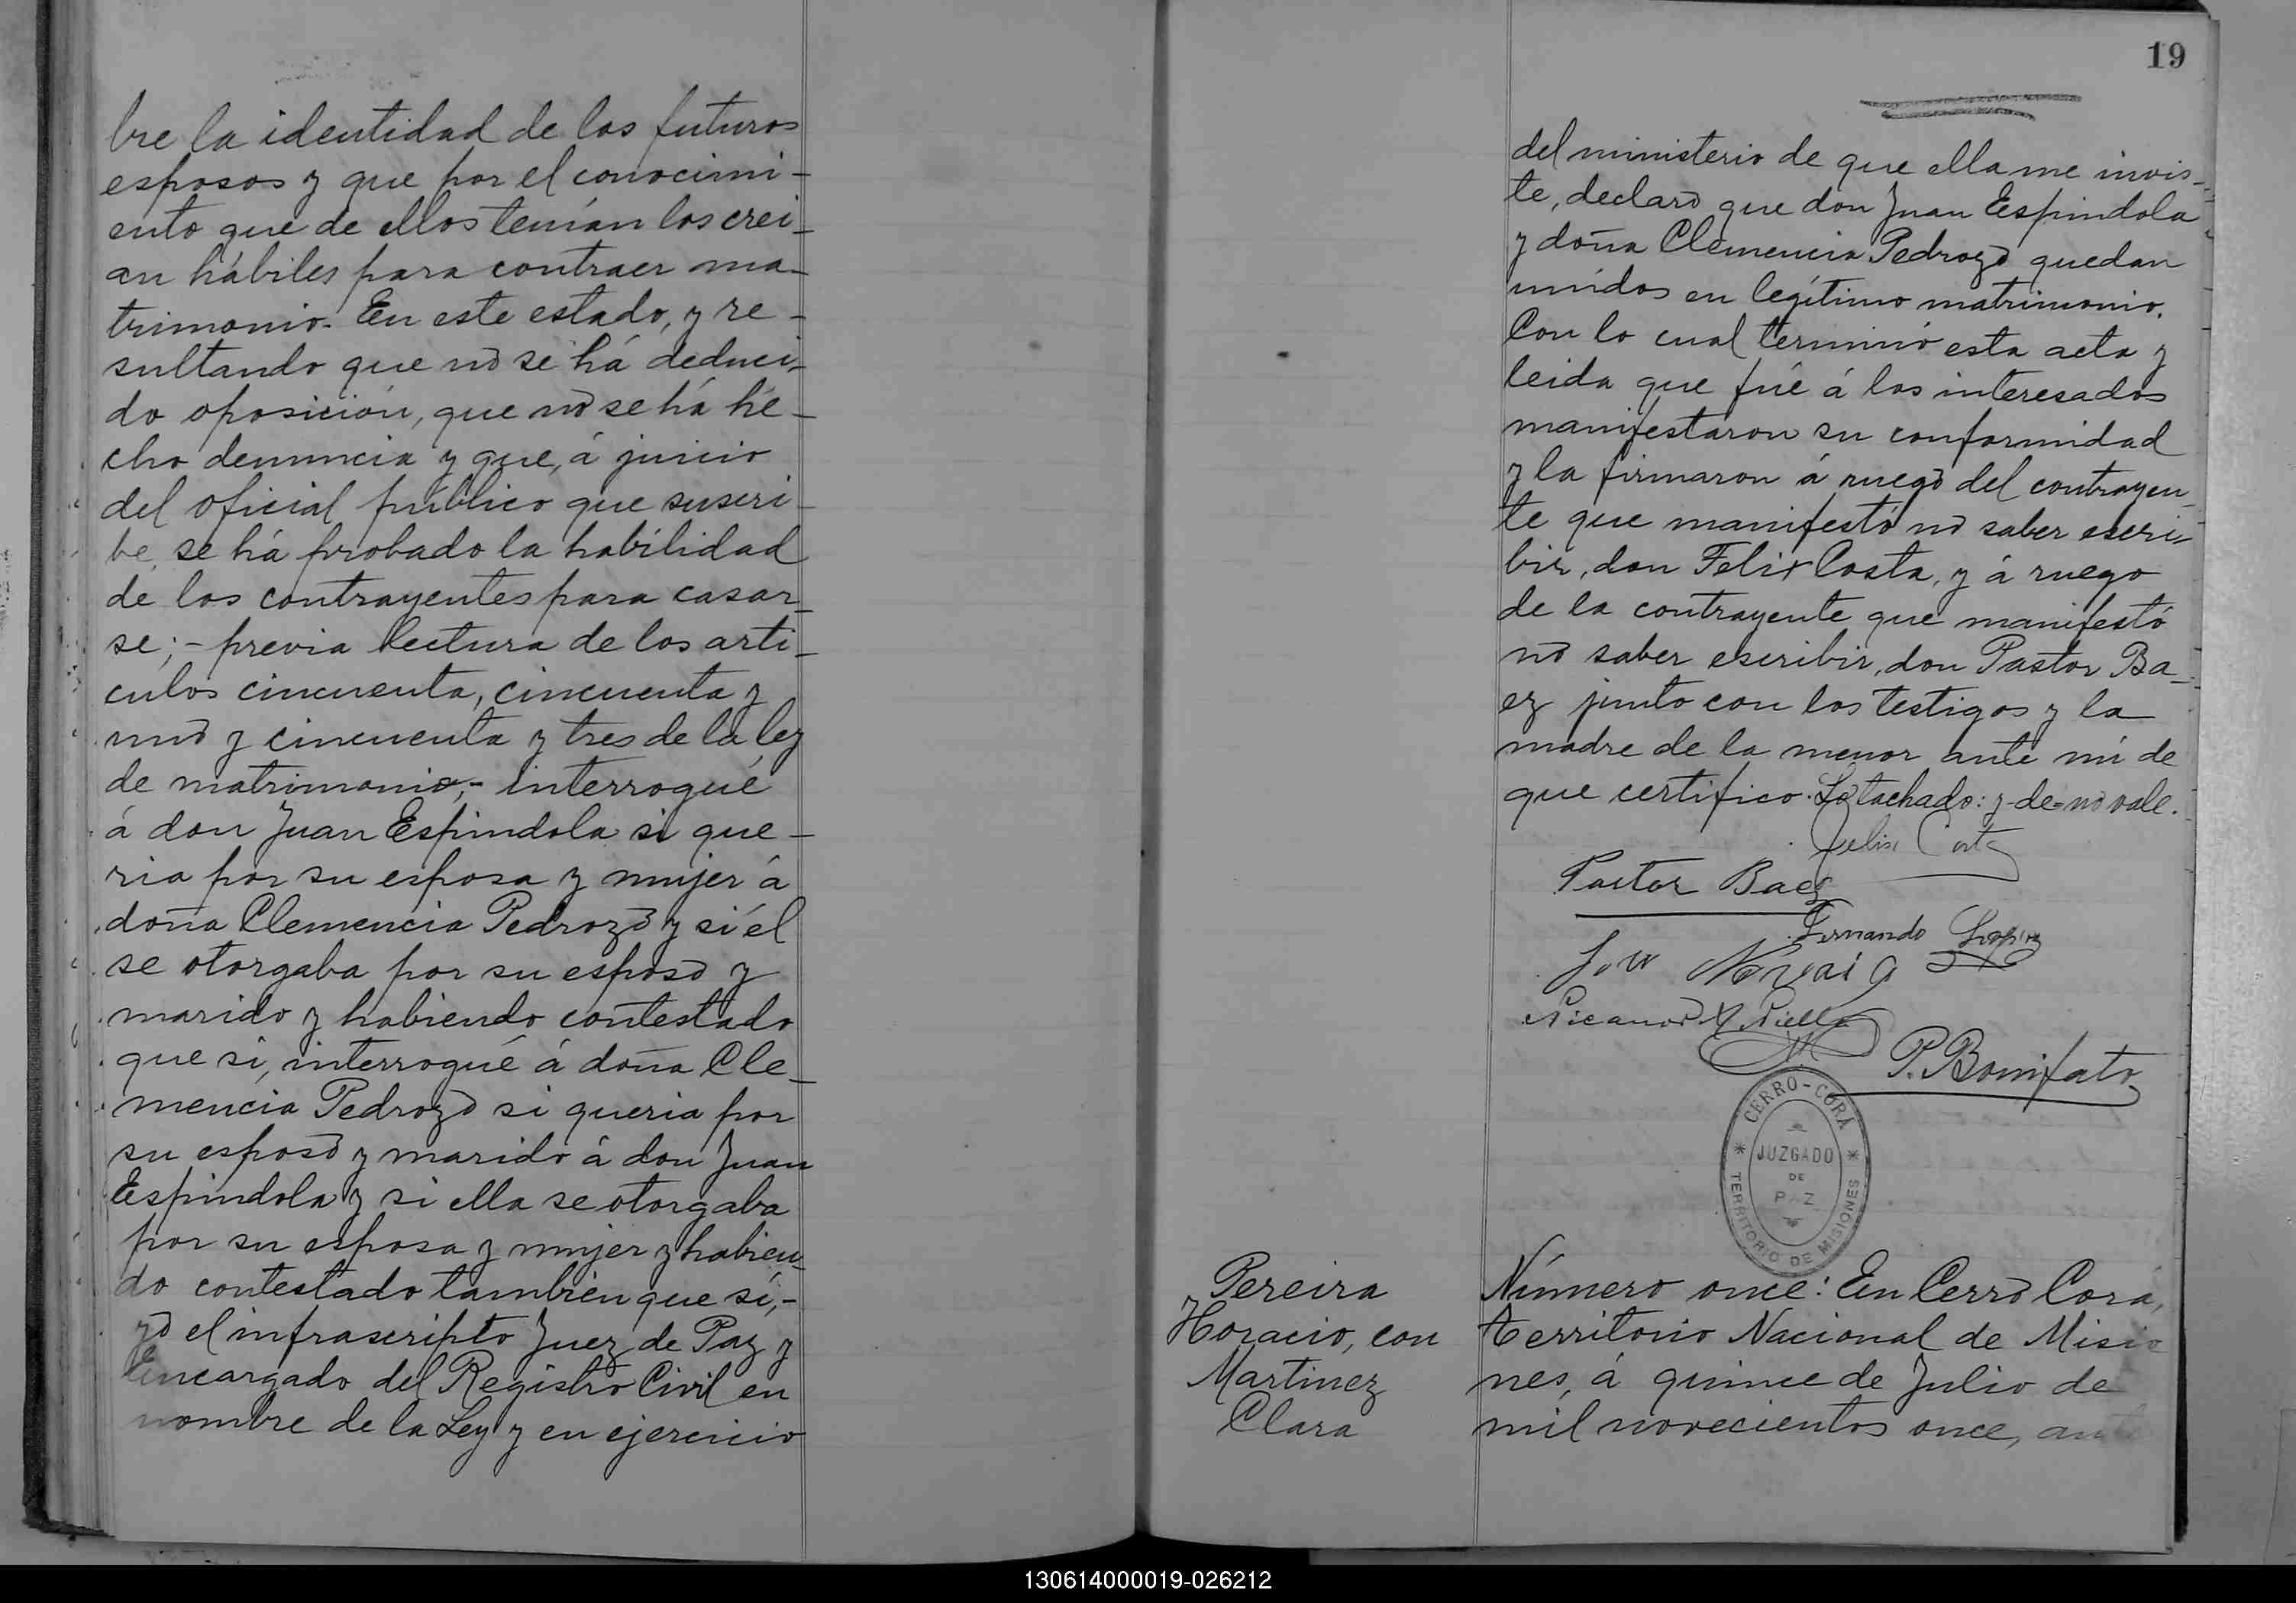 bre la identidad de los futuros
esposos y que por el conocimi-
ento que de ellos tenían los crei-
an hábiles para contraer ma-
trimonio. En este estado, y re-
sultando que nó se há deduci-
do oposición, que nó se há he-
cho denuncia y que, á juicio
del oficial público que suscri-
be, se há probado la habilidad
de los contrayentes para casar-
se; - previa lectura de los arti-
culos cincuenta, cincuenta y
uno y cincuenta y tres de la ley
de matrimonio, - interrogué
á don Juan Espindola si que-
ria por su esposa y mujer á
doña Clemencia Pedrozo y si él
se otorgaba por su esposo y
marido y habiendo contestado
que si, interrogué á doña Cle-
mencia Pedrozo si queria por
su esposo y marido á don Juan
Espindola y si ella se otorgaba
por su esposa y mujer y habien-
do contestado también que sí, -
yó el infrascripto Juez de Paz y
Encargado del Registro Civil en
nombre de la Ley y en ejercicio
19
del ministerio de que ella me invis-
te, declaro que don Juan Espindola
y doña Clemencia Pedrozo quedan
unidos en legítimo matrimonio.
Con lo cual terminó esta acta y
leida que fué á los interesados
manifestaron su conformidad
y la firmaron á ruego del contrayen-
te que manifestó nó saber escri-
bir, don Felix Costa, y á ruego
de la contrayente que manifestó
nó saber escribir, don Pastor Ba-
ez junto con los testigos y la
madre de la menor ante mí de
que certifico. Lo tachado: y-de=nó vale.
Felix Costa
Pastor Baez
Fernando
Nicanor
P. Bonifato
CERRO-CORÁ
JUZGADO
DE
PAZ
TERRITORIO DE MISIONES
Pereira
Horacio, con
Martinez
Clara
Número once: En Cerro Corá,
territorio Nacional de Misio
nes, á quince de Julio de
mil novecientos once, ante
130614000019-026212